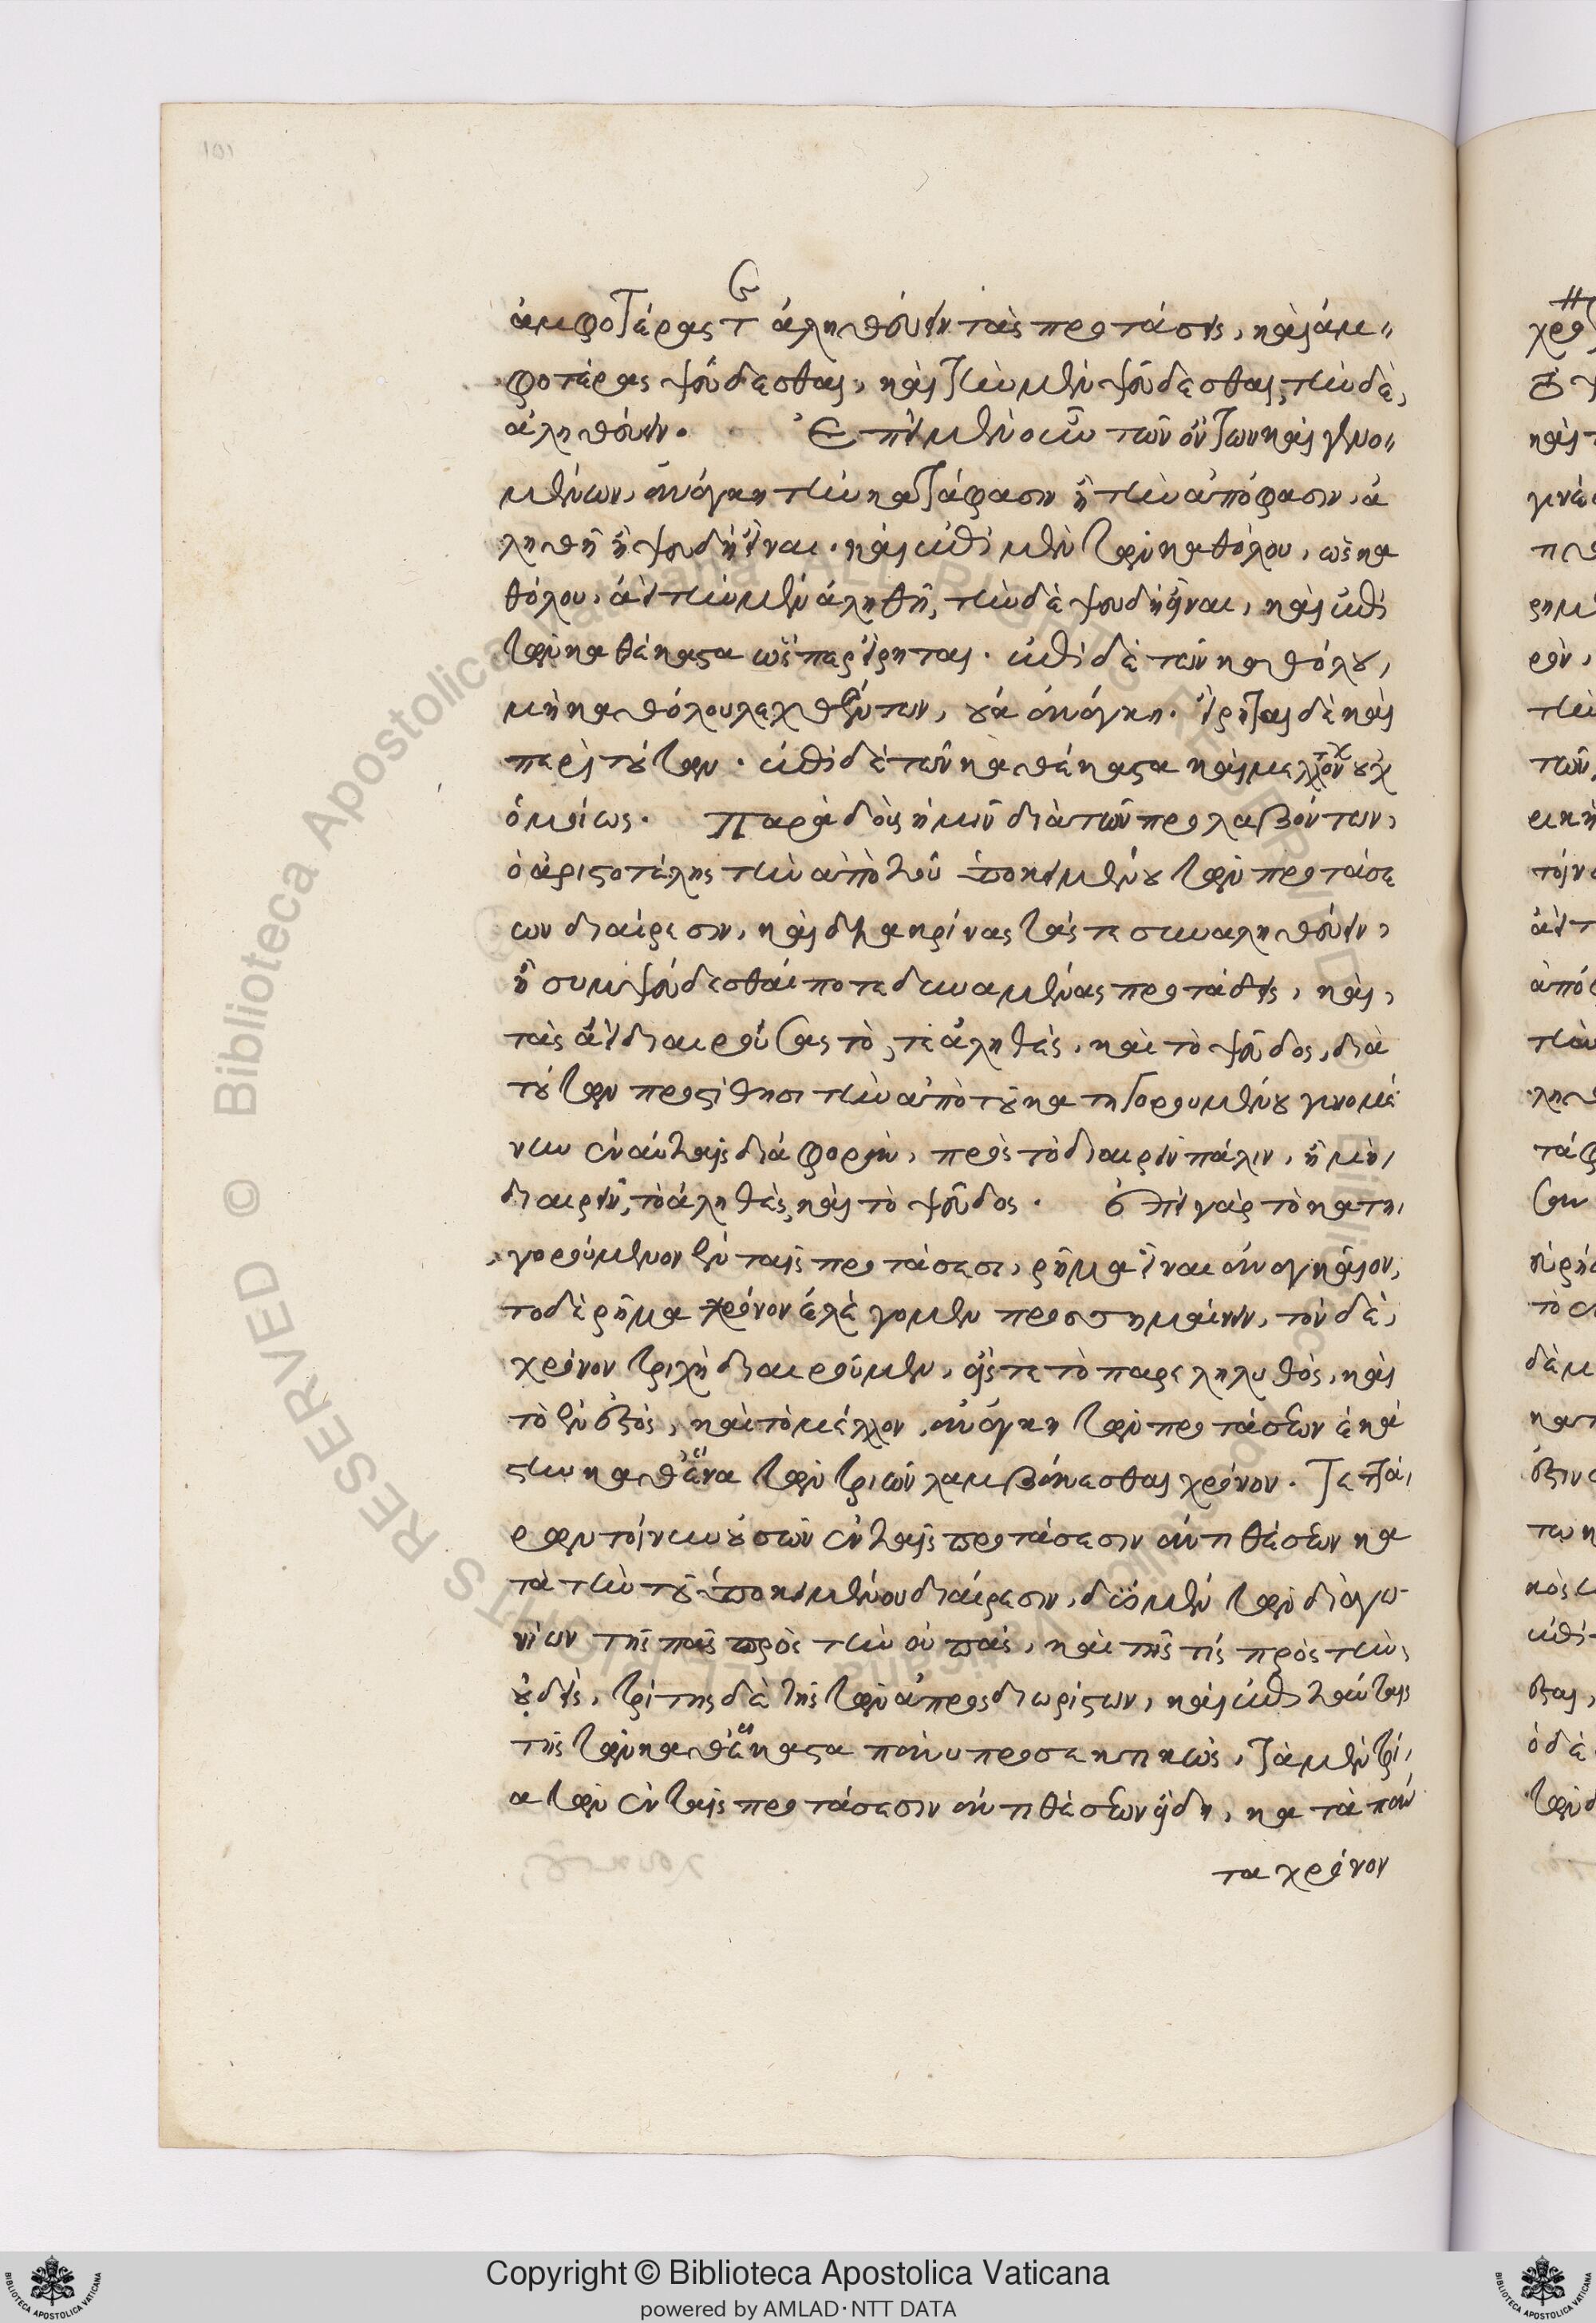 101
ἀμφοτέρας τ ἀληθεύειν τὰς προτάσεις, καὶ ἀμ〃
φοτέρας ψεύδεσθαι, καὶ τὴν μὲν ψεύδεσθαι, τὴν δὲ,
ἀληθεύειν. Ἐπὶ μὲν οὖν τῶν ὄντων καὶ γενο〃
μένων, ἀνάγκη τὴν κατάφασιν ἢ τὴν ἀπόφασιν, ἀ
ληθῆ ἢ ψευδῆ εἶναι. καὶ ἐπὶ μὲν τῶν καθόλου, ὡς κα
θόλου, ἀεὶ τὴν μὲν ἀληθῆ, τὴν δὲ ψευδῆ εἶναι, καὶ ἐπὶ
τῶν καθέκαστα ὥσπερ εἴρηται. ἐπὶ δὲ τῶν καθόλου,
μὴ καθόλου λεχθέντων, οὐκ ἀνάγκη. εἴρηται δὲ καὶ
περὶ τούτων. ἐπὶ δὲ τῶν καθέκαστα καὶ μελλόντων οὐχ
ὁμοίως. Παραδοὺς ἡμῖν διὰ τῶν προλαβόντων,
ὁ ἀριστοτέλης τὴν ἀπὸ τοῦ ὑποκειμένου τῶν προτάσε
ων διαίρεσιν, καὶ διακρίνας τάς τε συναληθεύειν,
ἢ συμψεύδεσθαί ποτε δυναμένας προτάσεις, καὶ,
τὰς ἀεὶ διαιρούσας τό, τε ἀληθὲς, καὶ τὸ ψεῦδος, διὰ
τούτων προστίθησι τὴν ἀπὸ τοῦ κατηγορουμένου γινομέ
νην ἐν αὐταῖς διαφορὰν, πρὸς τὸ διαιρεῖν πάλιν, ἢ μὴ,
διαιρεῖν, τὸ ἀληθὲς, καὶ τὸ ψεῦδος. ἐπεὶ γὰρ τὸ κατη,
γορούμενον ἐν ταῖς προτάσεσι, ῥῆμα εἶναι ἀναγκαῖον,
το δὲ ῥῆμα χρόνον ἐλέγομεν προσσημαίνειν, τὸν δὲ,
χρόνον τριχῆ διαιροῦμεν, εἴς τε τὸ παρεληλυθὸς, καὶ
τὸ ἐνεστὸς, καὶ τὸ μέλλον, ἀνάγκη τῶν προτάσεων ἑκά
στην καθ' ἕνα τῶν τριῶν λαμβάνεσθαι χρόνον. Τεττά,
ρων τοίνυν οὐσῶν ἐν ταῖς προτάσεσιν ἀντιθέσεων κα
τὰ τὴν τοῦ ὑποκειμένου διαίρεσιν, δύο μὲν τῶν διαγω
νίων τῆς πᾶς πρὸς τὴν οὐ πᾶς, καὶ τῆς τίς πρὸς τὴν,
οὐδεὶς, τρίτης δὲ τῆς τῶν ἀπροσδιορίστων, καὶ ἐπὶ ταύταις
τῆς τῶν καθέκαστα πάνυ προσεκτικῶς, τὰ μὲν τρί,
α τῶν ἐν ταῖς προτάσεσιν ἀντιθέσεων εἴδη, κατὰ πάν
τα χρόνον